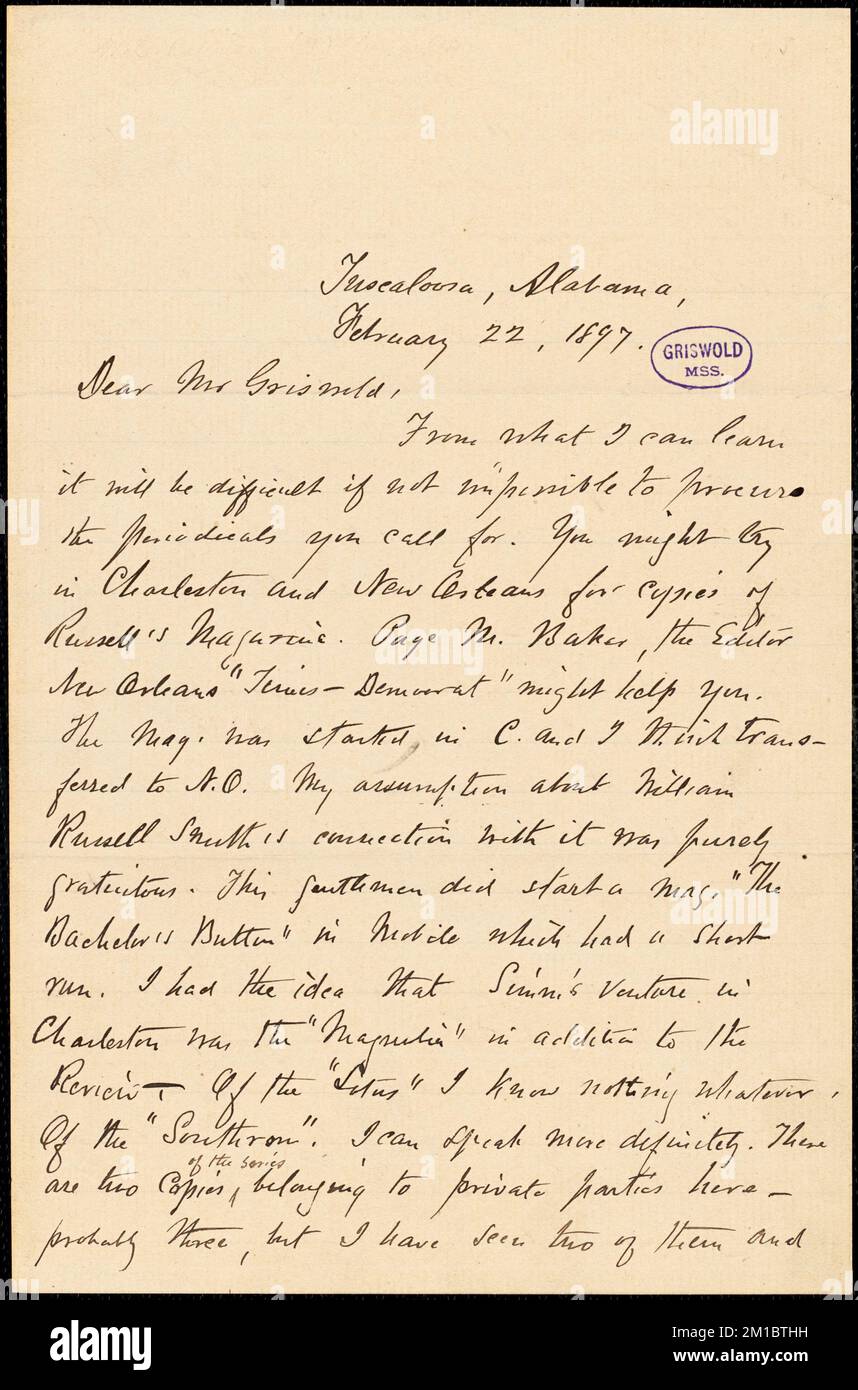 Tuscaloosa, Alabama,
February 22, 1897.
GRISWOLD
MSS.
Dear Mr Griswold,
From what I can learn
it will be difficult if not impossible to procure
the periodicals you call for. You might try
in Charleston and New Orleans for copies of
Russell's Magazine. Page M. Baker, the Editor
New Orleans "Times-Democrat" might help you.
The Mag. was started in C. and I think trans-
ferred to N.O. My assumption about William
Russell Smith's connection with it was purely
gratuitous. This gentleman did start a mag. "The
Bachelor's Button" in Mobile which had a short
run. I had the idea that Simm's venture in
Charleston was the "Magnolia" in addition to the
Review - Of the "Lotus" I know nothing whatever.
Of the "Southron". I can speak more definitely. There
of the series
are two copies belonging to private parties here -
probably three, but I have seen two of them and
alamy
alamy
Image ID: 2M1BTHH
www.alamy.com